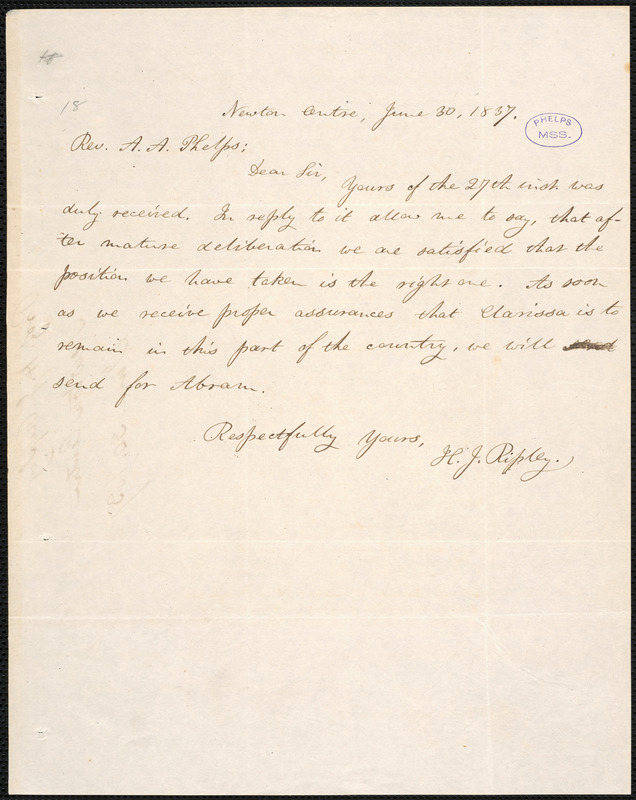 18
Newton Centre, June 30, 1837.
PHELPS
MSS.
Rev. A. A. Phelps:
Dear Sir,
Yours of the 27th inst. was
duly received. In reply to it allow me to say, that af-
ter mature deliberation we are satisfied that the
position we have taken is the right one. As soon
as we receive proper assurances that Clarissa is to
remain in this part of the country, we will send
send for Abram.
Respectfully Yours,
H. J. Ripley.